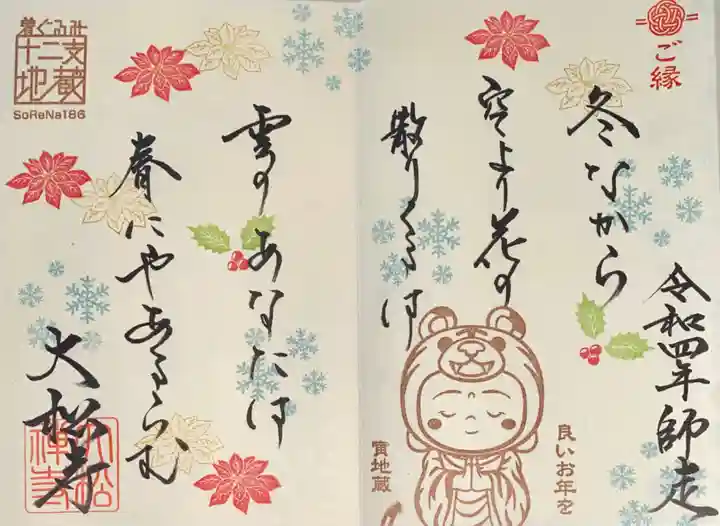 ご縁
令和四年師走
冬なから
空より花の
散りくるは
雲のあなたは
春にやあるらむ
大松寺
大松
禅寺
良いお年を
寅地蔵
着ぐるみ
十二支
地蔵
SoReNa186